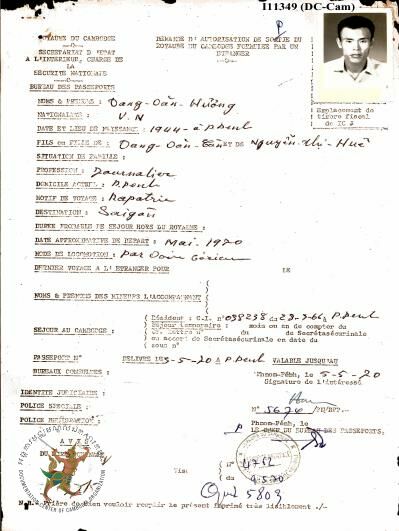 I11349 (DC-Cam)
ROYAUME DU CAMBODGE
SECRETARIAT D'ETAT
A L'INTERIEUR, CHARGE DE
LA
SÉCURITE NATIONALE
BUREAU DES PASSEPORTS
DEMANDE D'AUTORISATION DE SORTIE DU
ROYAUME DU CAMBODGE FORMULEE PAR UN
ETRANGER
Emplacement du
timbre fiscal
NOMS & PRENOMS : Dang-Van-Huong
NATIONALITE : V.N
DATE ET LIEU DE NAISSANCE : 1944 - à P.Penh
FILS ou FILLE DE : Dang-Van- ET DE Nguyên-thi-Huê
SITUATION DE FAMILLE :
PROFESSION : Journalier
DOMICILE ACTUEL : P.Penh
MOTIF DE VOYAGE : Rapatrié
DESTINATION : Saigon
DUREE PROBABLE DE SEJOUR HORS DU ROYAUME :
DATE APPROXIMATIVE DE DEPART : Mai 1970
MODE DE LOCOMOTION : Par Voie
DERNIER VOYAGE A L'ETRANGER POUR LE
NOMS & PRENOMS DES MINEURS L'ACCOMPAGNANT
SEJOUR AU CAMBODGE :
Résident : C.I. N° 038238 du à P.Penh
Séjour temporaire : mois ou an de compter du
ou accord de en date du
sous n°
PASSEPORT N° DELIVRE 5-5-70 A P.Penh VALABLE JUSQU'AU
BUREAUX CONSULTES :
Phnom-Penh, le 5-5-70
Signature de l'intéressé
IDENTITE JUDICIAIRE :
POLICE SPECIALE :
N° 5624
Phnom-Penh, le
P LE CHEF DU BUREAU DES PASSEPORTS,
AVIS
DOCUMENTATION CENTER OF CAMBODIA
Visa
N° 4752
5803
N.B. Prière de bien vouloir remplir le présent imprimé très lisiblement ./-